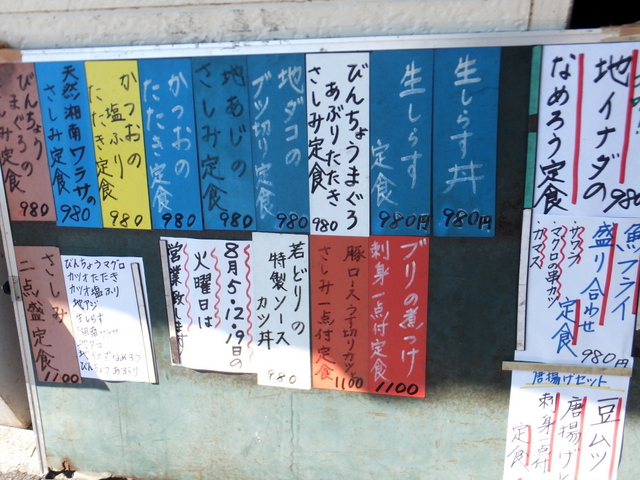 地イナダの
なめろう定食
980
生しらす丼
980円
生しらす
定食
980円
びんちょうまぐろ
あぶりたたき
さしみ定食
980
地ダコの
ブツ切り定食
980
地あじの
さしみ定食
980
かつおの
たたき定食
980
かつおの
塩ふり
たたき定食
980
天然湘南ワラサの
さしみ定食
980
びんちょう
まぐろの
さしみ定食
980
魚フライ
盛り合わせ
定食
・マグロの串カツ
・カマス
980円
ブリの煮つけ
刺身一点付定食
1100
豚ロースうす切りカツ
さしみ一点付定食
1100
若どりの
特製ソース
カツ丼
980
8月5.12.19日の
火曜日は
営業致します
びんちょうマグロ
カツオたたき
カツオ塩ふり
地アジ
生しらす
地ダコ
地イナダなめろう
びんちょうあぶり
さしみ
二点盛定食
1100
唐揚げセット
豆ムツ
唐揚げと
刺身一点付
定食